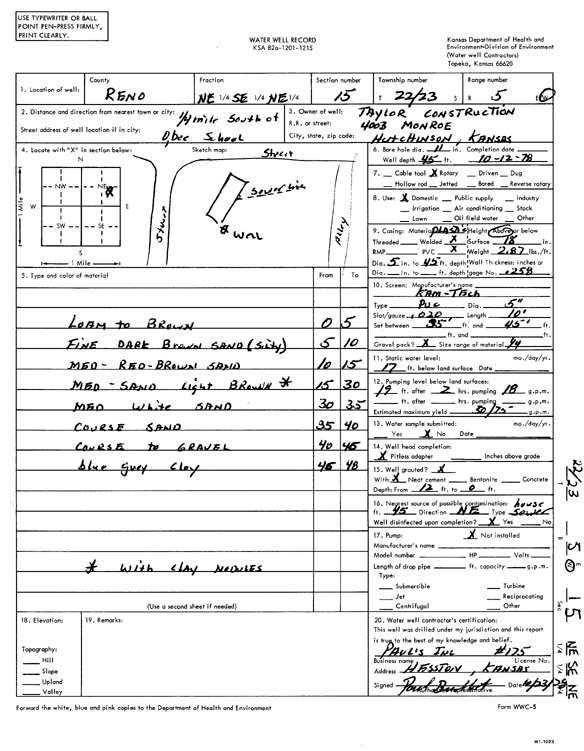 USE TYPEWRITER OR BALL
POINT PEN-PRESS FIRMLY,
PRINT CLEARLY.
WATER WELL RECORD
KSA 82a-1201-1215
Kansas Department of Health and
Environment-Division of Environment
(Water well Contractors)
Topeka, Kansas 66620
1. Location of well: County RENO Fraction NE 1/4 SE 1/4 NE 1/4 Section number 15 Township number T 22/23 S Range number R 5 E W
2. Distance and direction from nearest town or city: 1/4 mile South of
Street address of well location if in city: Obee School
3. Owner of well: TAYLOR CONSTRUCTION
R.R. or street: 4003 MONROE
City, state, zip code: HUTCHINSON, KANSAS
4. Locate with "X" in section below:
N
NW NE
W E
SW SE
S
1 Mile
1 Mile
Sketch map:
Street
Street
Sewer line
Well
Alley
5. Type and color of material From To
LOAM to BROWN 0 5
FINE DARK Brown SAND (Silty) 5 10
MED - RED-BROWN SAND 10 15
MED - SAND Light BROWN * 15 30
MED White SAND 30 35
COURSE SAND 35 40
COURSE to GRAVEL 40 45
blue grey Clay 45 48
* With CLAY NODULES
(Use a second sheet if needed)
6. Bore hole dia. 11 in. Completion date
Well depth 45 ft. 10-12-78
7. Cable tool X Rotary Driven Dug
Hollow rod Jetted Bored Reverse rotary
8. Use: X Domestic Public supply Industry
Irrigation Air conditioning Stock
Lawn Oil field water Other
9. Casing: Material PLASTIC Height: Above or below
Threaded Welded X Surface 18 in.
RMP PVC X Weight 2.87 lbs./ft.
Dia. 5 in. to 45 ft. depth Wall Thickness: inches or
Dia. in. to ft. depth gage No. .258
10. Screen: Manufacturer's name
KAM-Tech
Type PVC Dia. 5"
Slot/gauze .020 Length 10'
Set between 35' ft. and 45' ft.
ft. and ft.
Gravel pack? X Size range of material 1/4
11. Static water level: mo./day/yr.
17 ft. below land surface Date
12. Pumping level below land surfaces:
19 ft. after 2 hrs. pumping 18 g.p.m.
ft. after hrs. pumping g.p.m.
Estimated maximum yield 50/75 g.p.m.
13. Water sample submitted: mo./day/yr.
Yes X No Date
14. Well head completion:
X Pitless adapter Inches above grade
15. Well grouted? X
With: X Neat cement Bentonite Concrete
Depth: From 12 ft. to 0 ft.
16. Nearest source of possible contamination: house
ft. 45 Direction NE Type Sewer
Well disinfected upon completion? X Yes No
17. Pump: X Not installed
Manufacturer's name
Model number HP Volts
Length of drop pipe ft. capacity g.p.m.
Type:
Submersible Turbine
Jet Reciprocating
Centrifugal Other
18. Elevation:
19. Remarks:
Topography:
Hill
Slope
Upland
Valley
20. Water well contractor's certification:
This well was drilled under my jurisdiction and this report
is true to the best of my knowledge and belief.
PAUL'S INC #175
Business name License No.
Address HESSTON, KANSAS
Signed Authorized representative Date
Forward the white, blue and pink copies to the Department of Health and Environment
Form WWC-5
22/23
5 E W
Sec 15
1/4 1/4 1/4
NE SE NE